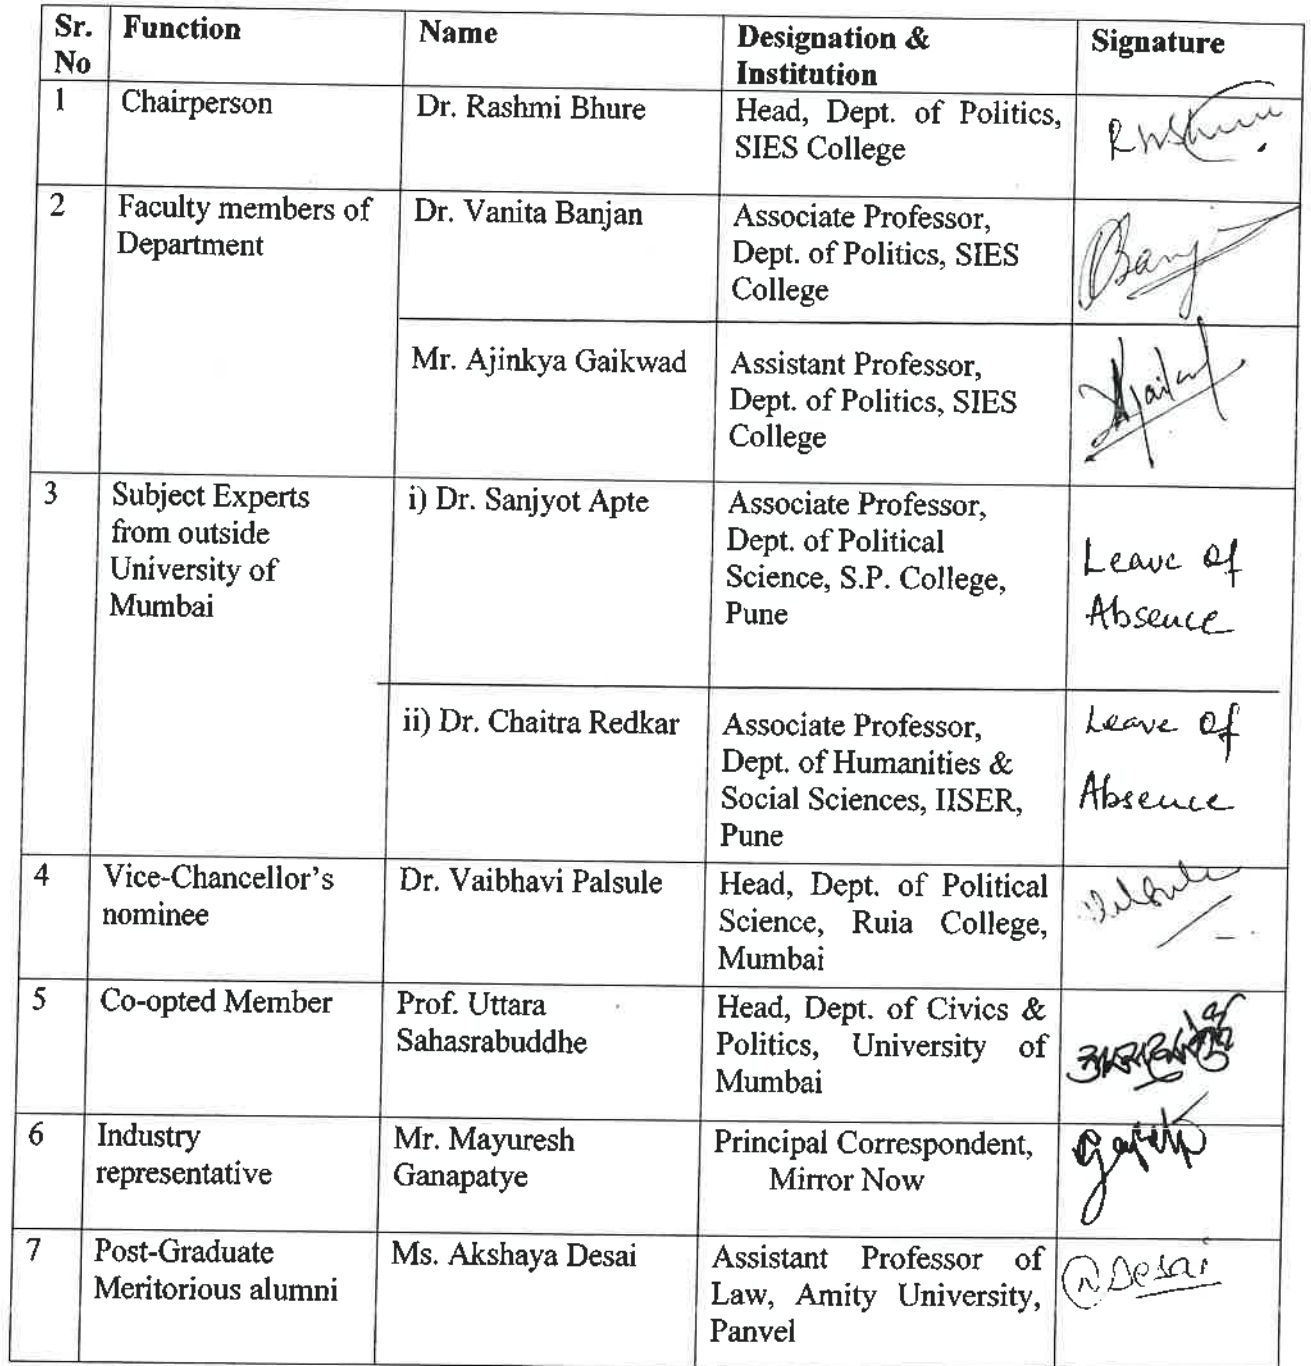 Sr. No Function Name Designation & Institution Signature
1 Chairperson Dr. Rashmi Bhure Head, Dept. of Politics,
SIES College
2 Faculty members of
Department
Dr. Vanita Banjan Associate Professor,
Dept. of Politics, SIES
College
Mr. Ajinkya Gaikwad Assistant Professor,
Dept. of Politics, SIES
College
3 Subject Experts
from outside
University of
Mumbai
i) Dr. Sanjyot Apte Associate Professor,
Dept. of Political
Science, S.P. College,
Pune
Leave of
Absence
ii) Dr. Chaitra Redkar Associate Professor,
Dept. of Humanities &
Social Sciences, IISER,
Pune
Leave of
Absence
4 Vice-Chancellor's
nominee
Dr. Vaibhavi Palsule Head, Dept. of Political
Science, Ruia College,
Mumbai
5 Co-opted Member Prof. Uttara
Sahasrabuddhe
Head, Dept. of Civics &
Politics, University of
Mumbai
6 Industry
representative
Mr. Mayuresh
Ganapatye
Principal Correspondent,
Mirror Now
7 Post-Graduate
Meritorious alumni
Ms. Akshaya Desai Assistant Professor of
Law, Amity University,
Panvel
Desai